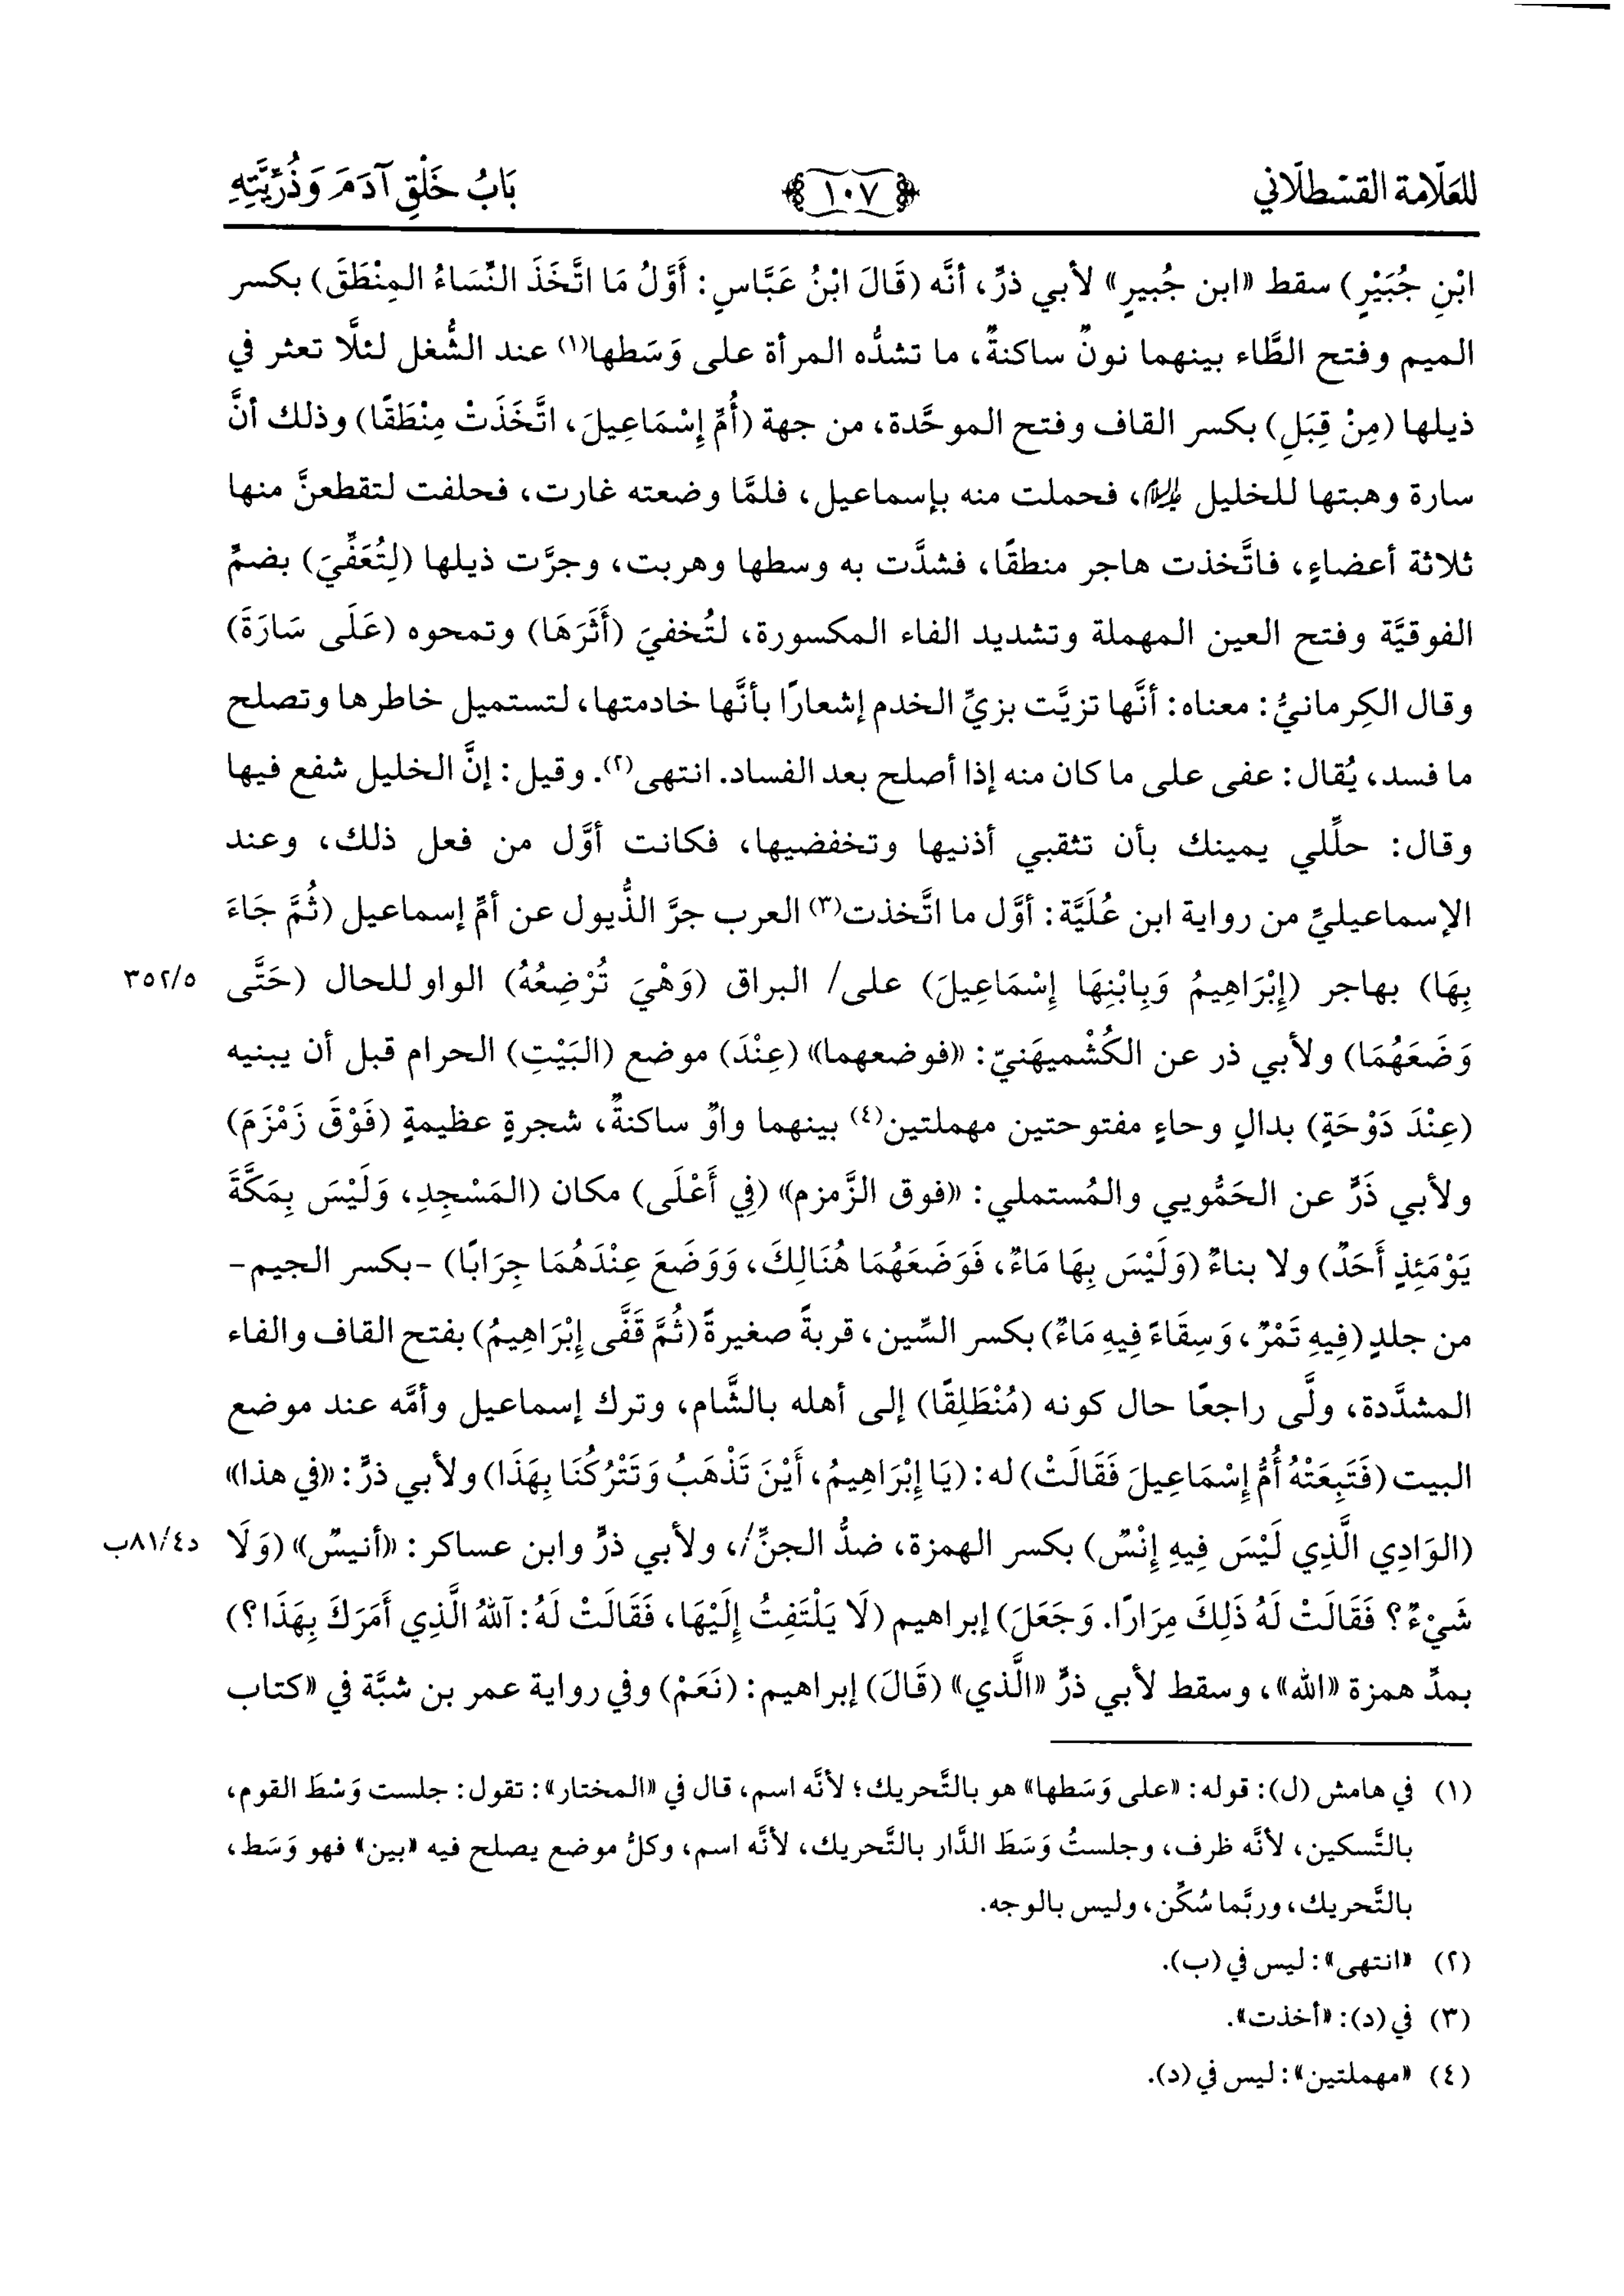 للعلّامة القسْطلّاني ١٠٧ بَابُ خَلْقِ آدَمَ وَذُرِّيَّتِهِ
ابْنِ جُبَيْرٍ) سقط «ابن جُبيرٍ» لأبي ذرٍّ، أنَّه (قَالَ ابْنُ عَبَّاسٍ: أَوَّلُ مَا اتَّخَذَ النِّسَاءُ المِنْطَقَ) بكسر
الميم وفتح الطَّاء بينهما نونٌ ساكنةٌ، ما تشدُّه المرأة على وَسَطها(١) عند الشُّغل لئلَّا تعثر في
ذيلها (مِنْ قِبَلِ) بكسر القاف وفتح الموحَّدة، من جهة (أُمِّ إِسْمَاعِيلَ، اتَّخَذَتْ مِنْطَقًا) وذلك أنَّ
سارة وهبتها للخليل ﵇، فحملت منه بإسماعيل، فلمَّا وضعته غارت، فحلفت لتقطعنَّ منها
ثلاثة أعضاءٍ، فاتَّخذت هاجر منطقًا، فشدَّت به وسطها وهربت، وجرَّت ذيلها (لِتُعَفِّيَ) بضمِّ
الفوقيَّة وفتح العين المهملة وتشديد الفاء المكسورة، لتُخفيَ (أَثَرَهَا) وتمحوه (عَلَى سَارَةَ)
وقال الكِرمانيُّ: معناه: أنَّها تزيَّت بزيِّ الخدم إشعارًا بأنَّها خادمتها، لتستميل خاطرها وتصلح
ما فسد، يُقال: عفى على ما كان منه إذا أصلح بعد الفساد. انتهى(٢). وقيل: إنَّ الخليل شفع فيها
وقال: حلِّلي يمينك بأن تثقبي أذنيها وتخفضيها، فكانت أوَّل من فعل ذلك، وعند
الإسماعيليِّ من رواية ابن عُلَيَّة: أوَّل ما اتَّخذت(٣) العرب جرَّ الذُّيول عن أمِّ إسماعيل (ثُمَّ جَاءَ
بِهَا) بهاجر (إِبْرَاهِيمُ وَبِابْنِهَا إِسْمَاعِيلَ) على/ البراق (وَهْيَ تُرْضِعُهُ) الواو للحال (حَتَّى ٣٥٢/٥
وَضَعَهُمَا) ولأبي ذر عن الكُشْميهَنيّ: «فوضعهما» (عِنْدَ) موضع (البَيْتِ) الحرام قبل أن يبنيه
(عِنْدَ دَوْحَةٍ) بدالٍ وحاءٍ مفتوحتين مهملتين(٤) بينهما واوٌ ساكنةٌ، شجرةٍ عظيمةٍ (فَوْقَ زَمْزَمَ)
ولأبي ذَرٍّ عن الحَمُّويي والمُستملي: «فوق الزَّمزم» (فِي أَعْلَى) مكان (المَسْجِدِ، وَلَيْسَ بِمَكَّةَ
يَوْمَئِذٍ أَحَدٌ) ولا بناءٌ (وَلَيْسَ بِهَا مَاءٌ، فَوَضَعَهُمَا هُنَالِكَ، وَوَضَعَ عِنْدَهُمَا جِرَابًا) -بكسر الجيم-
من جلدٍ (فِيهِ تَمْرٌ، وَسِقَاءً فِيهِ مَاءٌ) بكسر السِّين، قربةً صغيرةً (ثُمَّ قَفَّى إِبْرَاهِيمُ) بفتح القاف والفاء
المشدَّدة، ولَّى راجعًا حال كونه (مُنْطَلِقًا) إلى أهله بالشَّام، وترك إسماعيل وأمَّه عند موضع
البيت (فَتَبِعَتْهُ أُمُّ إِسْمَاعِيلَ فَقَالَتْ) له: (يَا إِبْرَاهِيمُ، أَيْنَ تَذْهَبُ وَتَتْرُكُنَا بِهَذَا) ولأبي ذرٍّ: «في هذا»
(الوَادِي الَّذِي لَيْسَ فِيهِ إِنْسٌ) بكسر الهمزة، ضدُّ الجنِّ/، ولأبي ذرٍّ وابن عساكر: «أنيسٌ» (وَلَا د٤/٨١ب
شَيْءٌ؟ فَقَالَتْ لَهُ ذَلِكَ مِرَارًا. وَجَعَلَ) إبراهيم (لَا يَلْتَفِتُ إِلَيْهَا، فَقَالَتْ لَهُ: آللهُ الَّذِي أَمَرَكَ بِهَذَا؟)
بمدِّ همزة «الله»، وسقط لأبي ذرٍّ «الَّذي» (قَالَ) إبراهيم: (نَعَمْ) وفي رواية عمر بن شبَّة في «كتاب
(١) في هامش (ل): قوله: «على وَسَطها» هو بالتَّحريك؛ لأنَّه اسم، قال في «المختار»: تقول: جلست وَسْطَ القوم،
بالتَّسكين، لأنَّه ظرف، وجلستُ وَسَطَ الدَّار بالتَّحريك، لأنَّه اسم، وكلُّ موضع يصلح فيه «بين» فهو وَسَط،
بالتَّحريك، وربَّما سُكِّن، وليس بالوجه.
(٢) «انتهى»: ليس في (ب).
(٣) في (د): «أخذت».
(٤) «مهملتين»: ليس في (د).